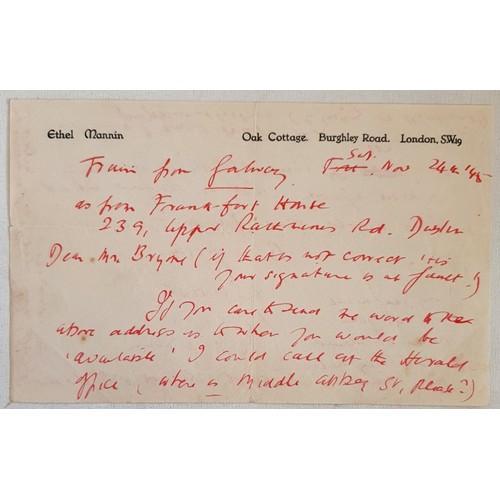 Ethel Mannin Oak Cottage. Burghley Road. London, S.W.19
Sat.
Train from Galway. Nov 24th '45
as from Frankfort House
239, Upper Rathmines Rd. Dublin
Dear Mr Bryne (if that is not correct 'tis
your signature is at fault!)
If you care to send me word to the
above address as to when you would be
'available' I could call at the Herald
office (where is Middle Abbey St, please?)